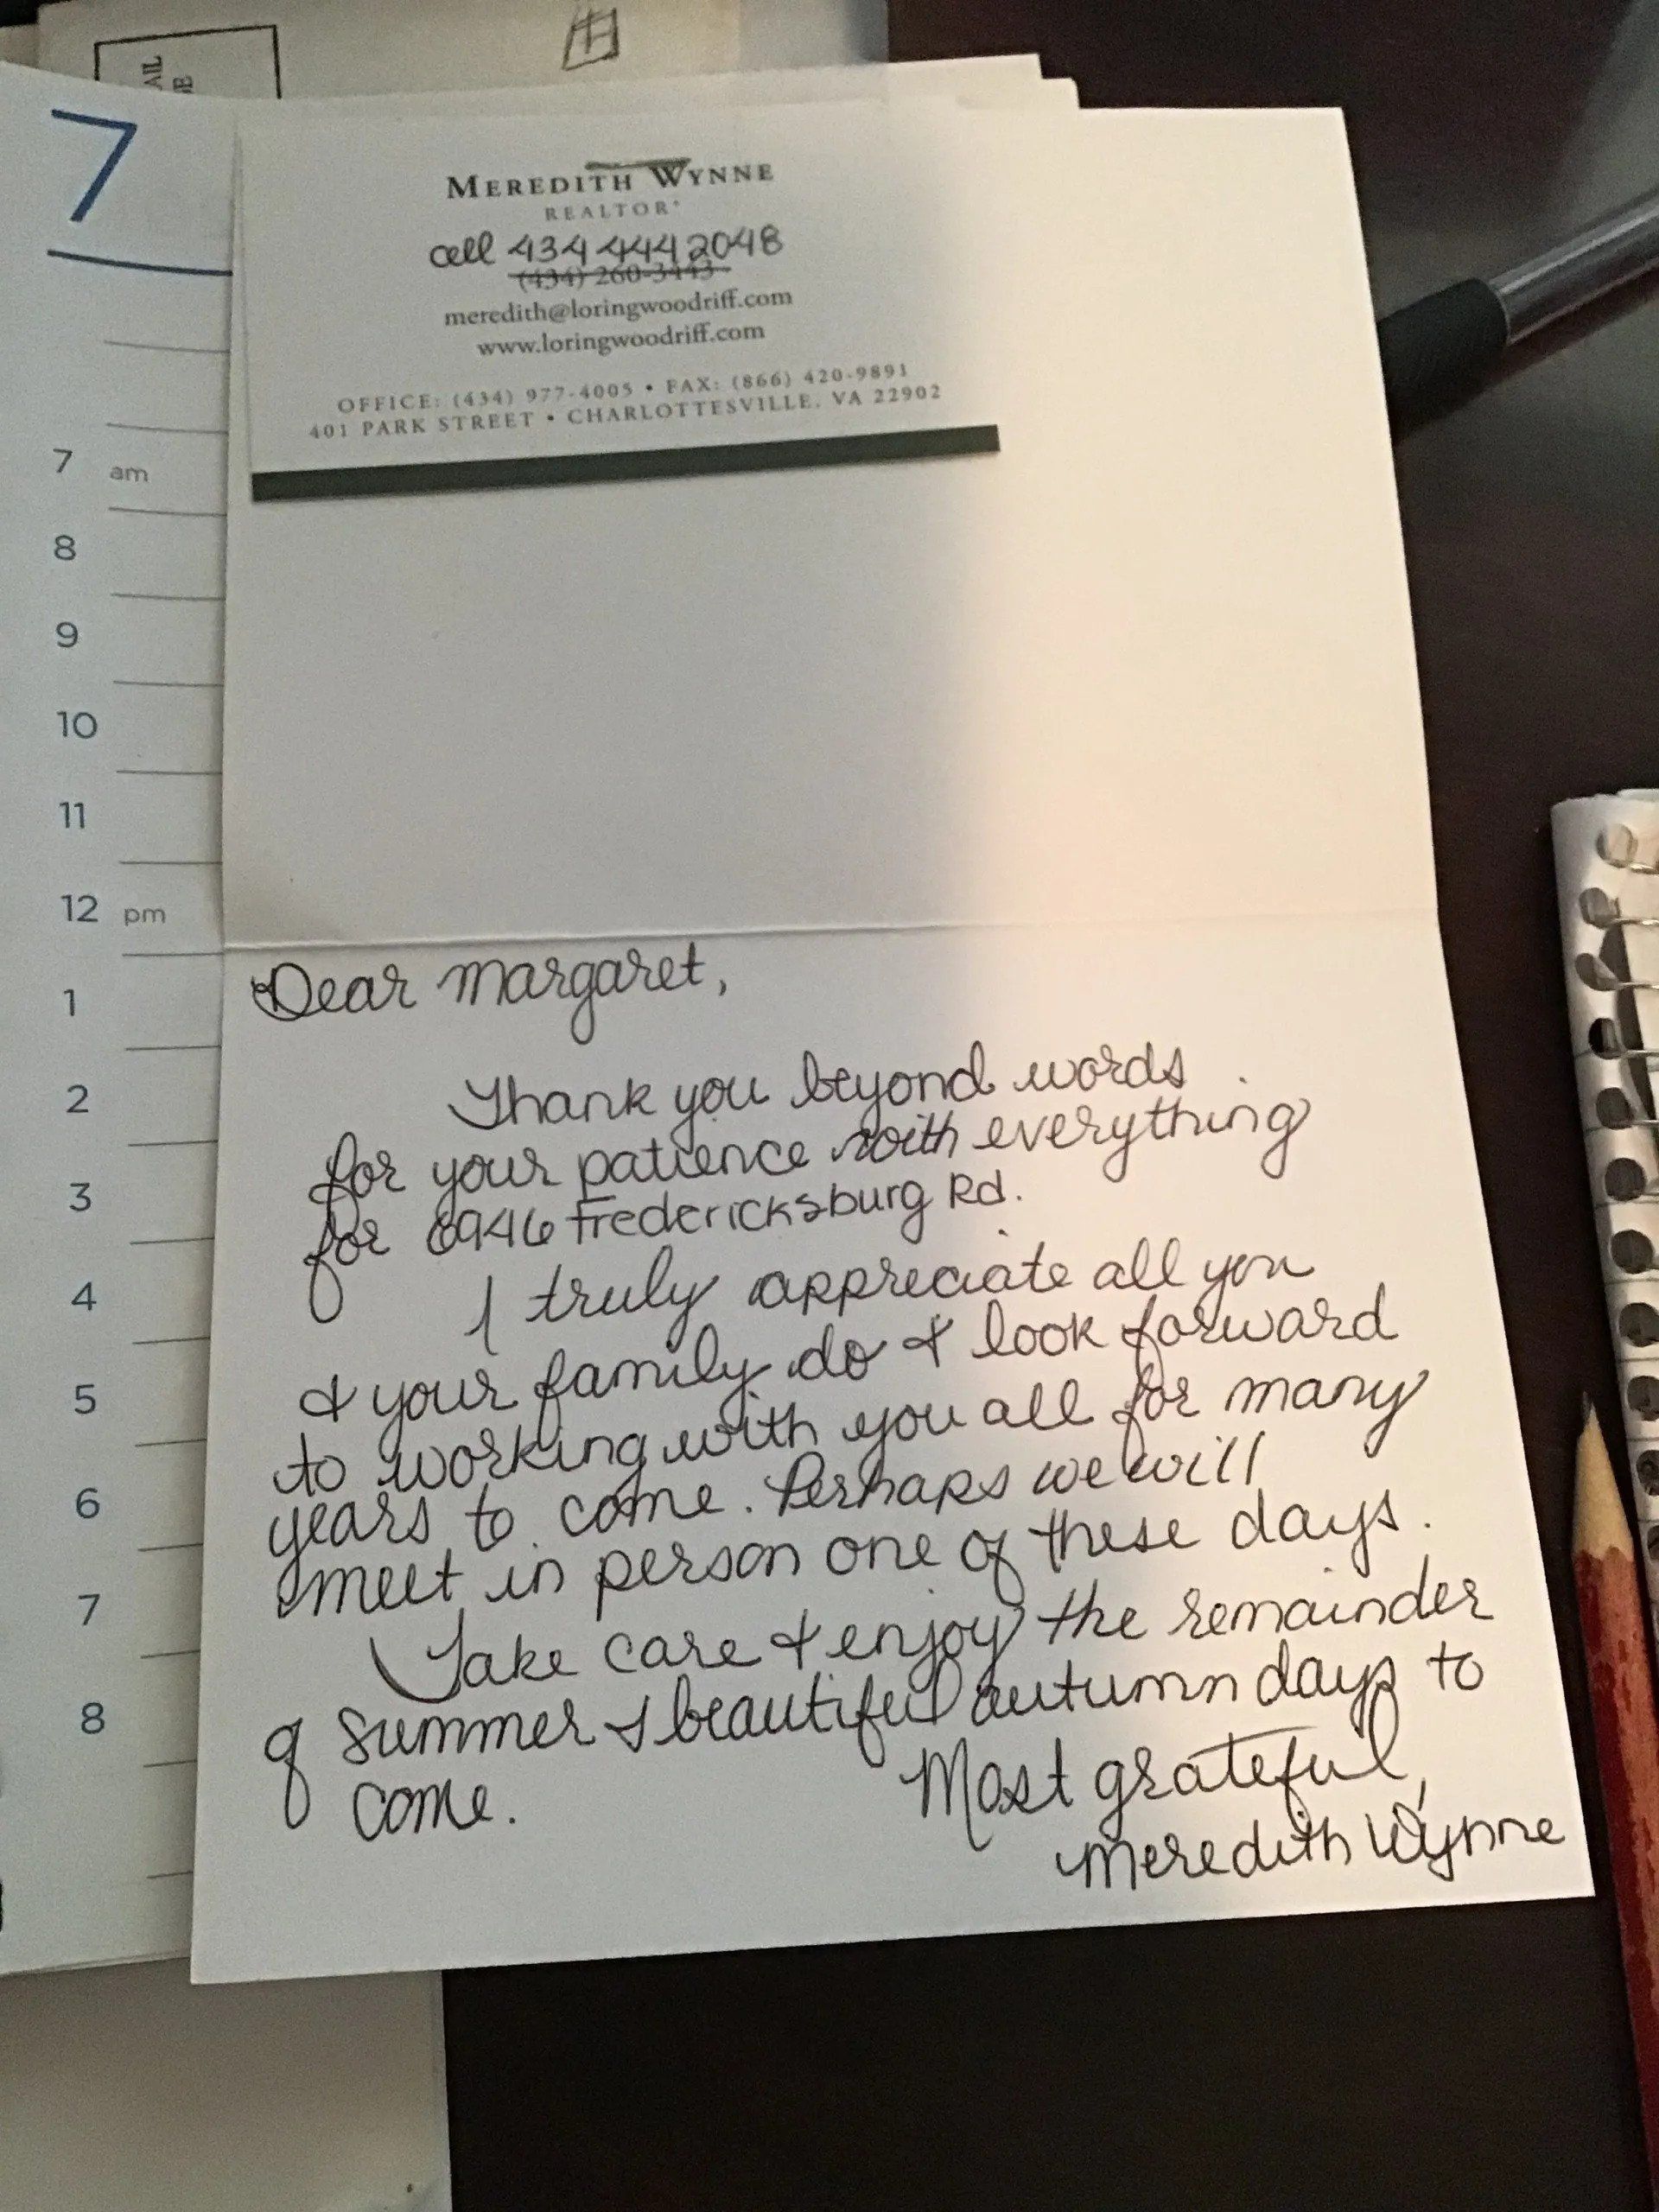 AIL
GE
7
MEREDITH WYNNE
REALTOR®
cell 434 444 2048
(434) 260-3443
meredith@loringwoodriff.com
www.loringwoodriff.com
OFFICE: (434) 977-4005 • FAX: (866) 420-9891
401 PARK STREET • CHARLOTTESVILLE, VA 22902
7 am
8
9
10
11
12 pm
1
2
3
4
5
6
7
8
Dear Margaret,
Thank you beyond words
for your patience with everything
for 6946 Fredericksburg Rd.
I truly appreciate all you
& your family do & look forward
to working with you all for many
years to come. Perhaps we will
meet in person one of these days.
Take care & enjoy the remainder
of summer & beautiful autumn days to
come.
Most grateful,
Meredith Wynne